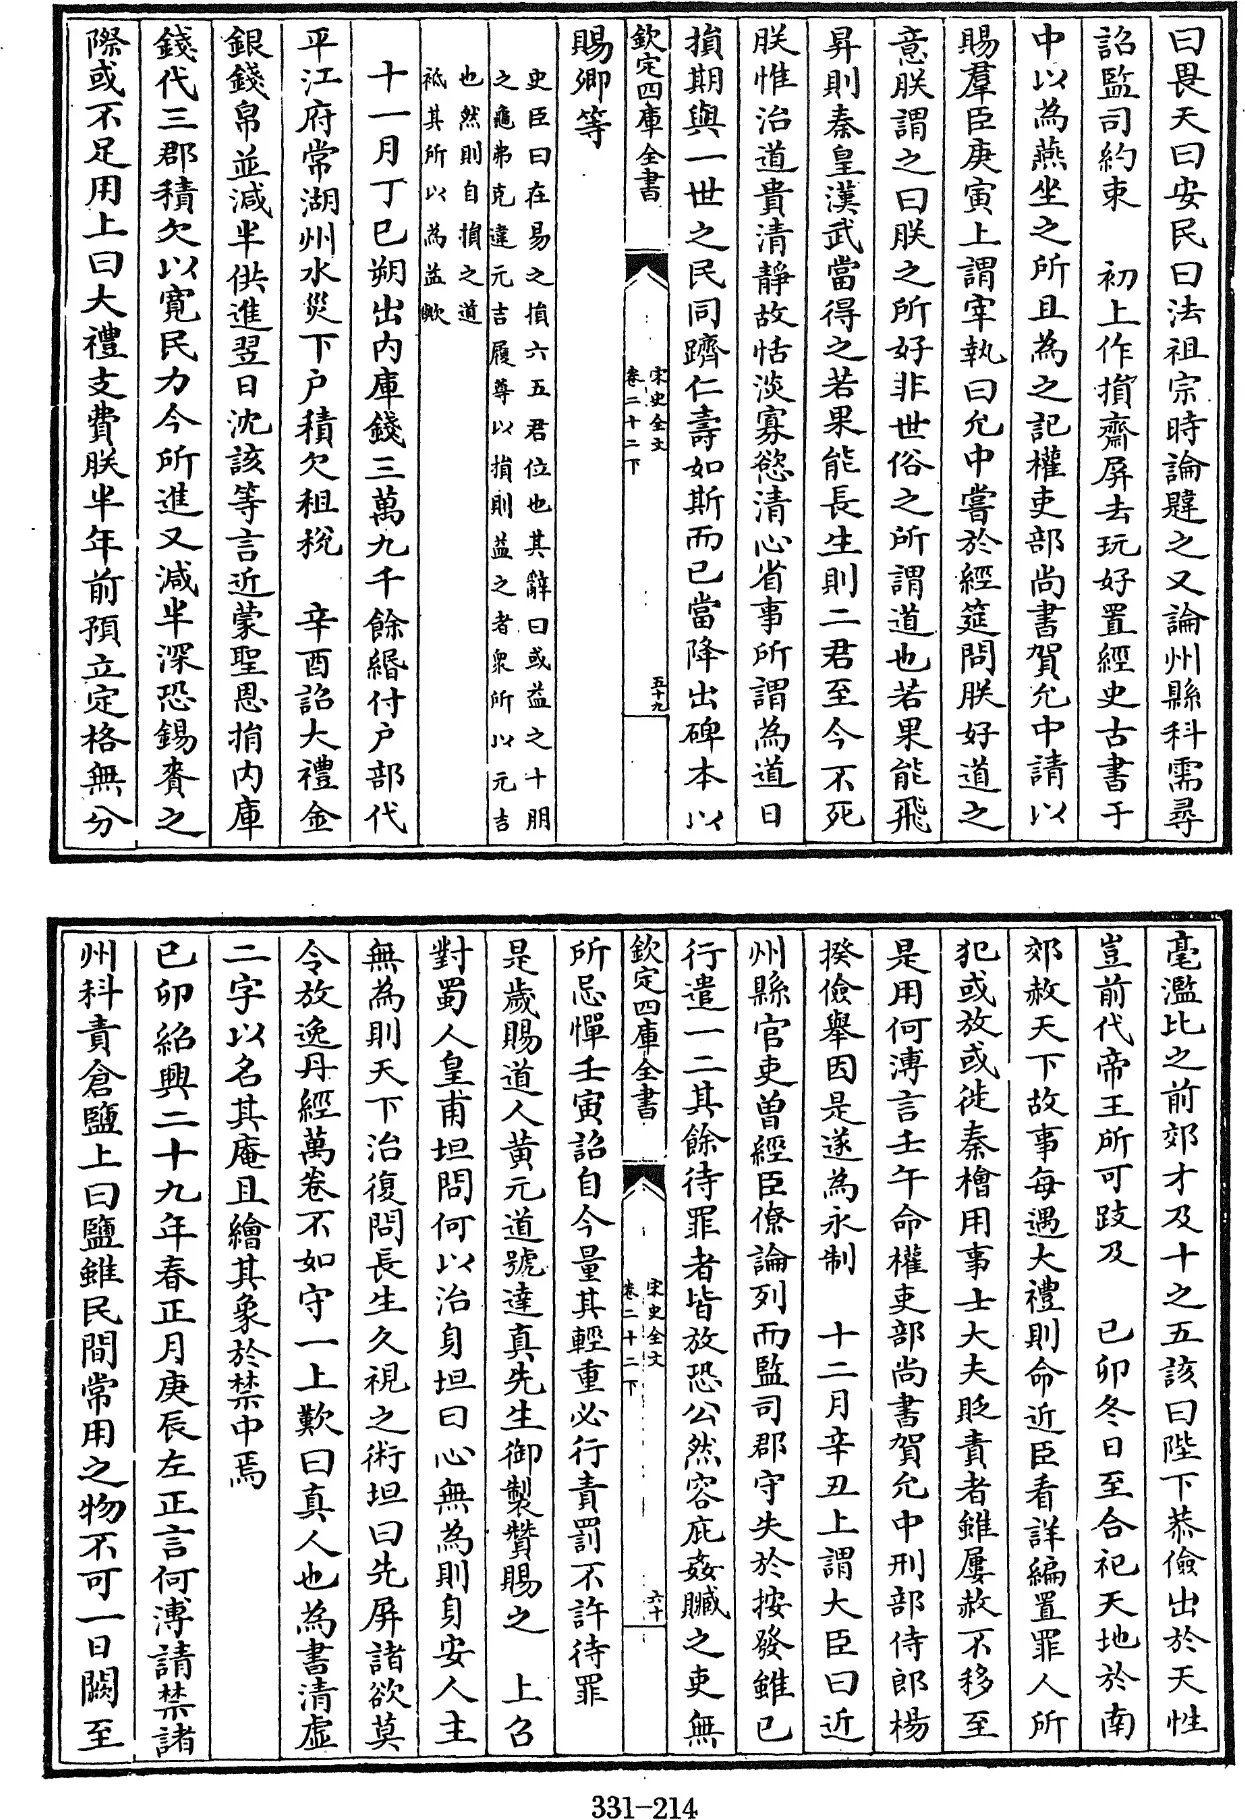 曰畏天曰安民曰法祖宗時論韙之又論州縣科需尋
詔監司約束　初上作損齋屏去玩好置經史古書于
中以為燕坐之所且為之記權吏部尚書賀允中請以
賜羣臣庚寅上謂宰執曰允中嘗於經筵問朕好道之
意朕謂之曰朕之所好非世俗之所謂道也若果能飛
昇則秦皇漢武當得之若果能長生則二君至今不死
朕惟治道貴清靜故恬淡寡慾清心省事所謂為道日
損期與一世之民同躋仁壽如斯而已當降出碑本以
欽定四庫全書
宋史全文
卷二十二下
五十九
賜卿等
史臣曰在易之損六五君位也其辭曰或益之十朋
之龜弗克違元吉履尊以損則益之者衆所以元吉
也然則自損之道
祗其所以為益歟
十一月丁巳朔出内庫錢三萬九千餘緡付户部代
平江府常湖州水災下户積欠租稅　辛酉詔大禮金
銀錢帛並減半供進翌日沈該等言近蒙聖恩損内庫
錢代三郡積欠以寛民力今所進又減半深恐錫賚之
際或不足用上曰大禮支費朕半年前預立定格無分
毫濫比之前郊才及十之五該曰陛下恭儉出於天性
豈前代帝王所可跂及　己卯冬日至合祀天地於南
郊赦天下故事每遇大禮則命近臣看詳編置罪人所
犯或放或徙秦檜用事士大夫貶責者雖屢赦不移至
是用何溥言壬午命權吏部尚書賀允中刑部侍郎楊
揆儉舉因是遂為永制　十二月辛丑上謂大臣曰近
州縣官吏曽經臣僚論列而監司郡守失於按發雖已
行遣一二其餘待罪者皆放恐公然容庇姦贓之吏無
欽定四庫全書
宋史全文
卷二十二下
六十
所忌憚壬寅詔自今量其輕重必行責罰不許待罪
是歲賜道人黄元道號達真先生御製贊賜之　上召
對蜀人皇甫坦問何以治身坦曰心無為則身安人主
無為則天下治復問長生久視之術坦曰先屏諸欲莫
令放逸丹經萬卷不如守一上歎曰真人也為書清虛
二字以名其庵且繪其象於禁中焉
己卯紹興二十九年春正月庚辰左正言何溥請禁諸
州科責倉鹽上曰鹽雖民間常用之物不可一日闕至
331-214